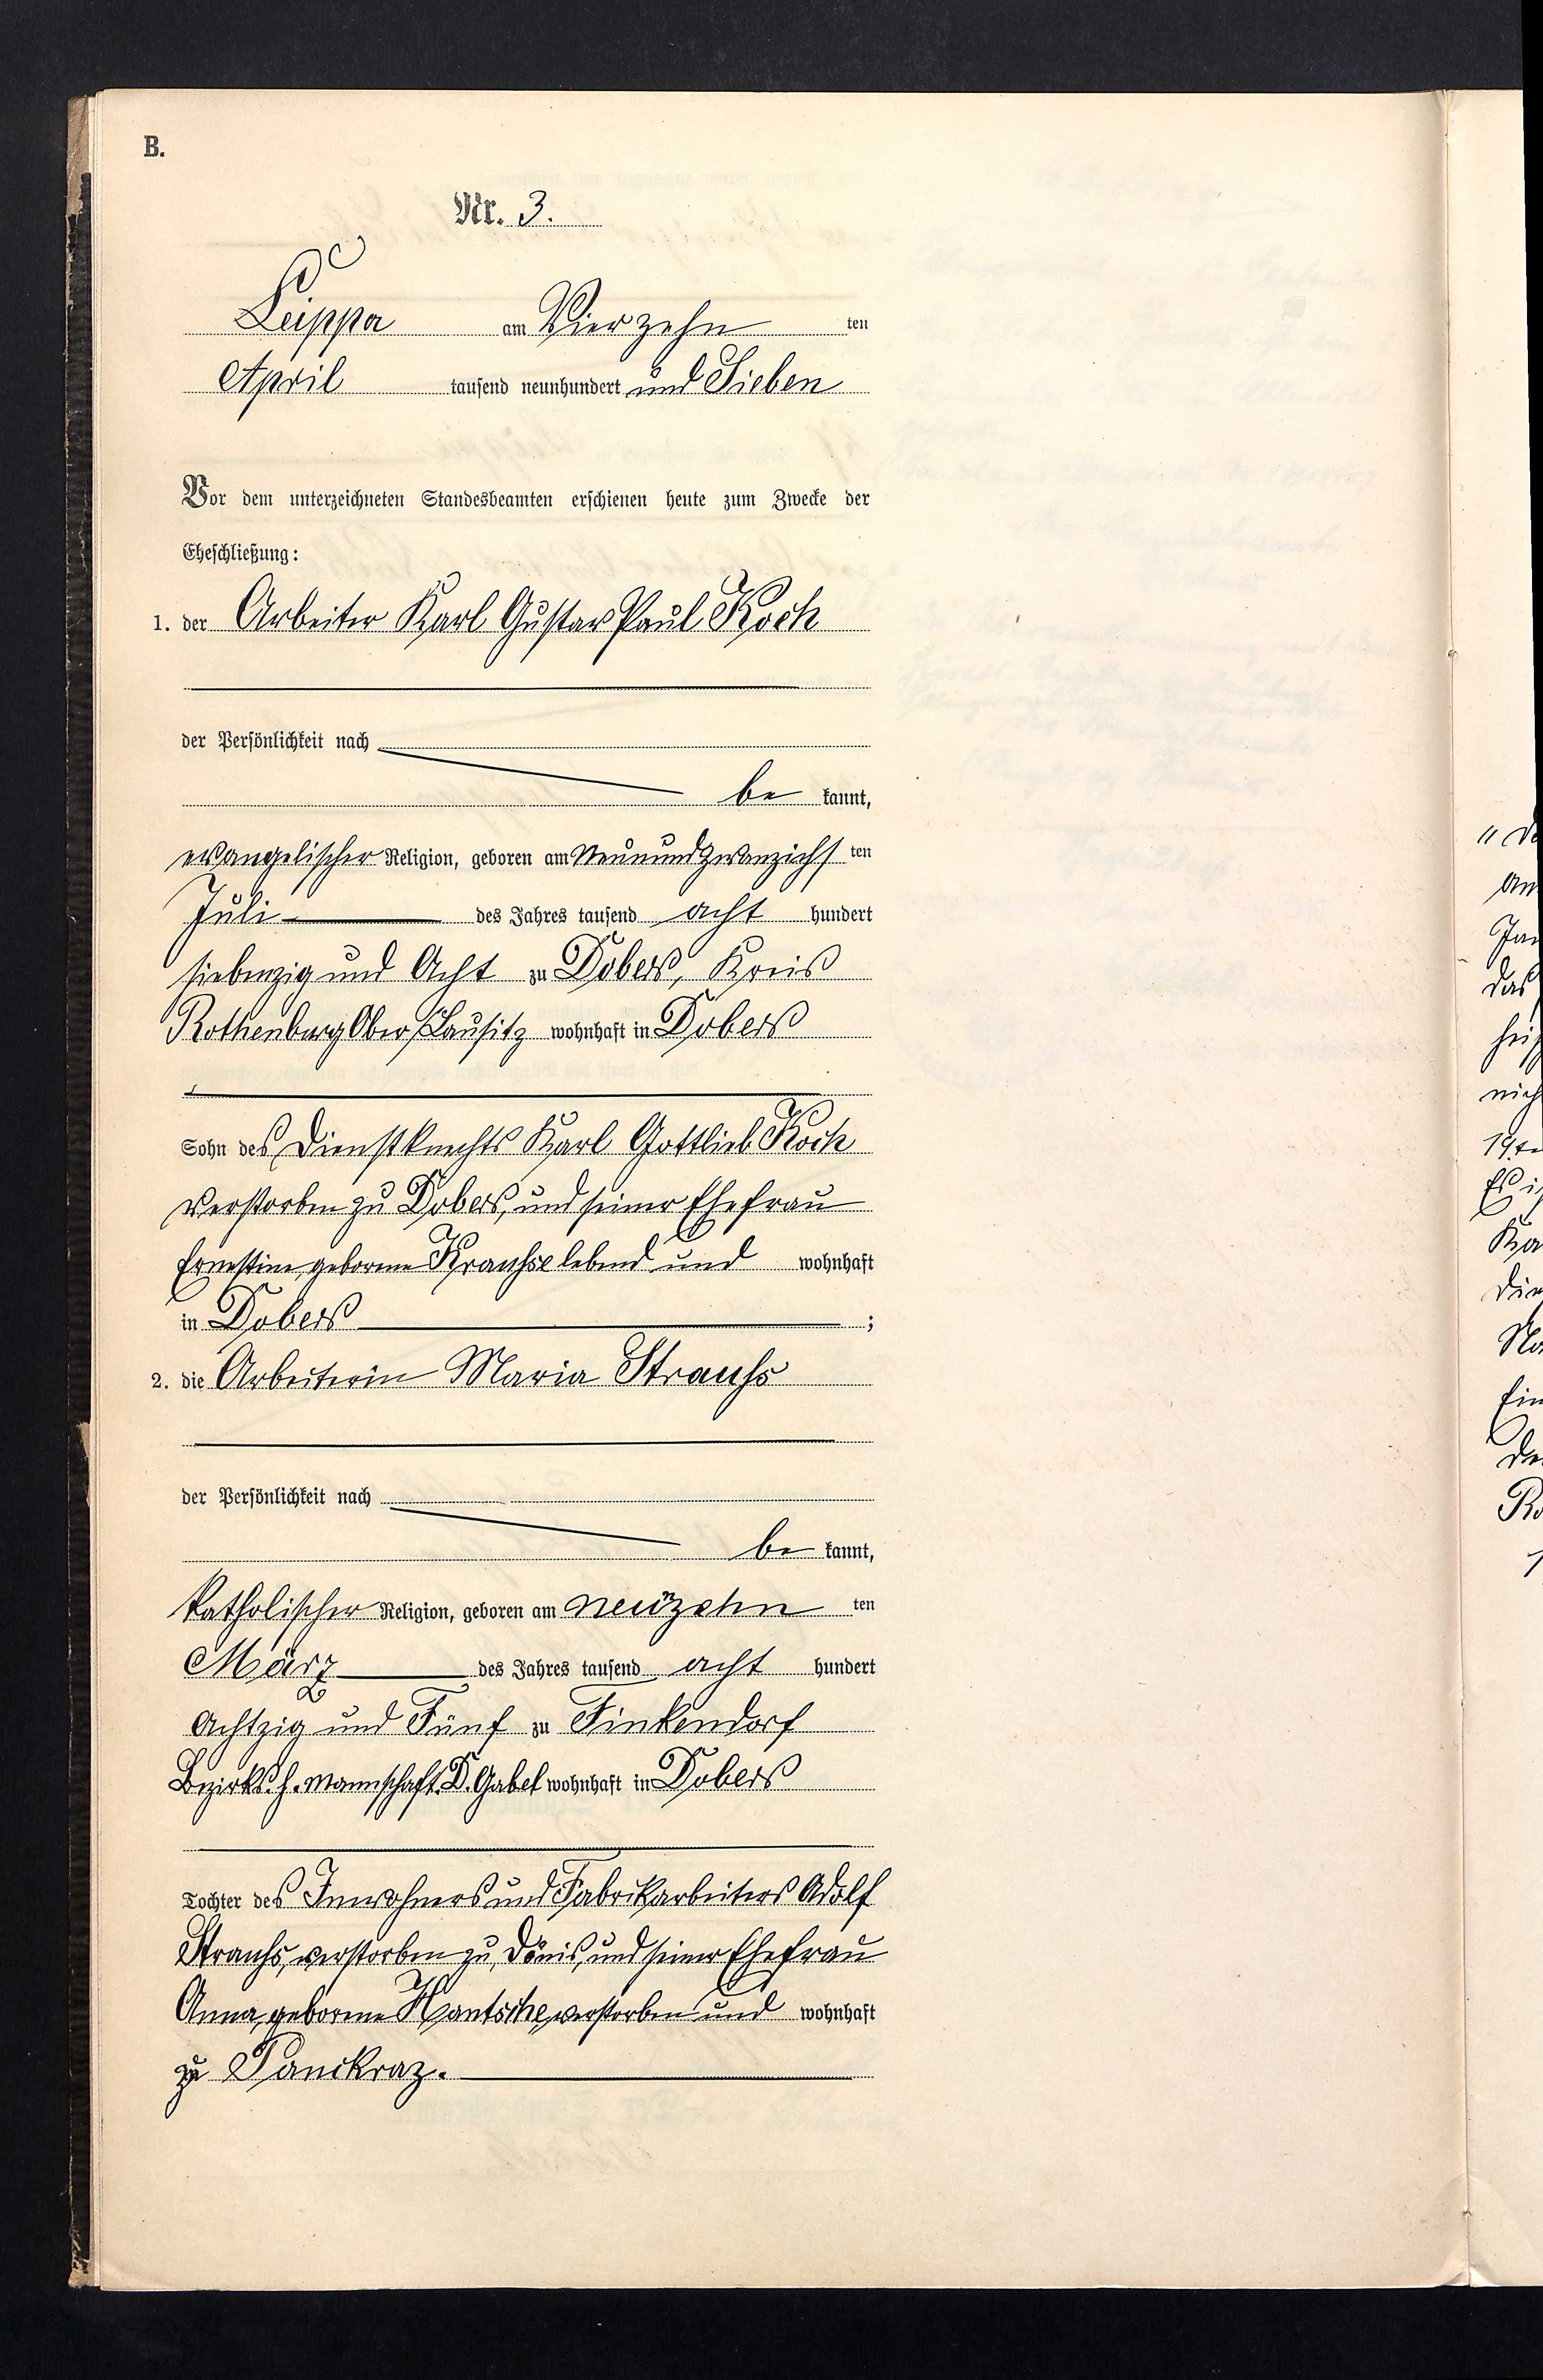 B.
Nr. 3.
Leippa am Vierzehn ten
April tausend neunhundert und Sieben
Vor dem unterzeichneten Standesbeamten erschienen heute zum Zwecke der
Eheschließung:
1. der Arbeiter Karl Gustav Paul Koch
der Persönlichkeit nach
be kannt,
evangelischer Religion, geboren am Neunundzwanzigs ten
Juli des Jahres tausend acht hundert
siebenzig und Acht zu Dobers, Kreis
Rothenburg Ober/Lausitz wohnhaft in Dobers
Sohn des Dienstknechts Karl Gottlieb Koch
verstorben zu Dobers, und seiner Ehefrau
Ernestine, geborene Krauhse lebend und wohnhaft
in Dobers ;
2. die Arbeiterin Maria Strauhs
der Persönlichkeit nach
be kannt,
katholischer Religion, geboren am neunzehn ten
März des Jahres tausend acht hundert
Achtzig und Fünf zu Finkendorf
Bezirks. h. mannschaft. D. Gabel wohnhaft in Dobers
Tochter des Inwohners und Fabrikarbeiters Adolf
Strauhs, verstorben zu, Dönis, und seiner Ehefrau
Anna, geborene Hantsche, verstorben und wohnhaft
zu Panckraz.